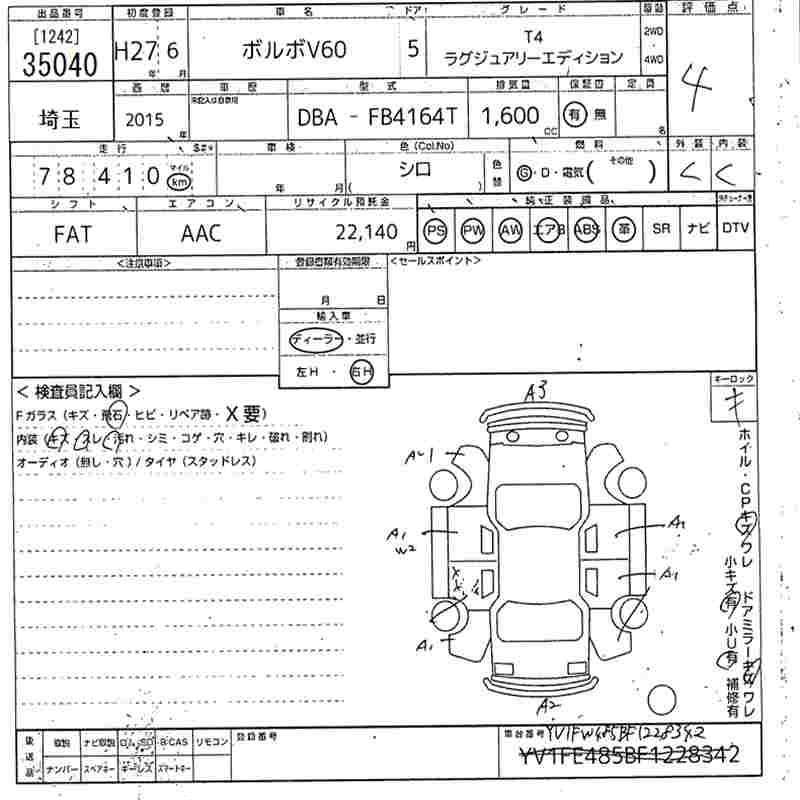 出品番号 初度登録 車名 ドア グレード 駆動 評価点
[1242]
35040
H27 6
年 月
ボルボV60
5
T4
ラグジュアリーエディション
2WD
4WD
4
西暦 車歴 型式 排気量 保証書 定員
未記入は自家用
埼玉
2015 年
DBA - FB4164T
1,600 cc
有 無
名
走行 車検 色(Col.No) 燃料 外装 内装
78410
マイル
km
年 月
シロ
( )
色替
G・D・電気( その他 )
く く
シフト エアコン リサイクル預託金 純正装備品
FAT
AAC
22,140 円
PS PW AW エアB ABS 革 SR ナビ DTV
<注意事項>
登録書類有効期限
月 日
<セールスポイント>
輸入車
ディーラー・並行
左H・右H
< 検査員記入欄 >
Fガラス(キズ・飛石・ヒビ・リペア跡・X要)
内装(キズ・スレ・汚れ・シミ・コゲ・穴・キレ・破れ・割れ)
オーディオ(無し・穴)/タイヤ(スタッドレス)
キーロック
キ
A3
A1
W2
A1
A1
A2
ホイル・CPキズワレ
ドアミラーキズワレ
小キズ有
小U有
補修有
後送品
取説 ナビ取説 B-CAS リモコン
ナンバー スペアキー キーレス スマートキー
登録番号
車台番号
YV1FW485BF1228342
YV1FE485BF1228342